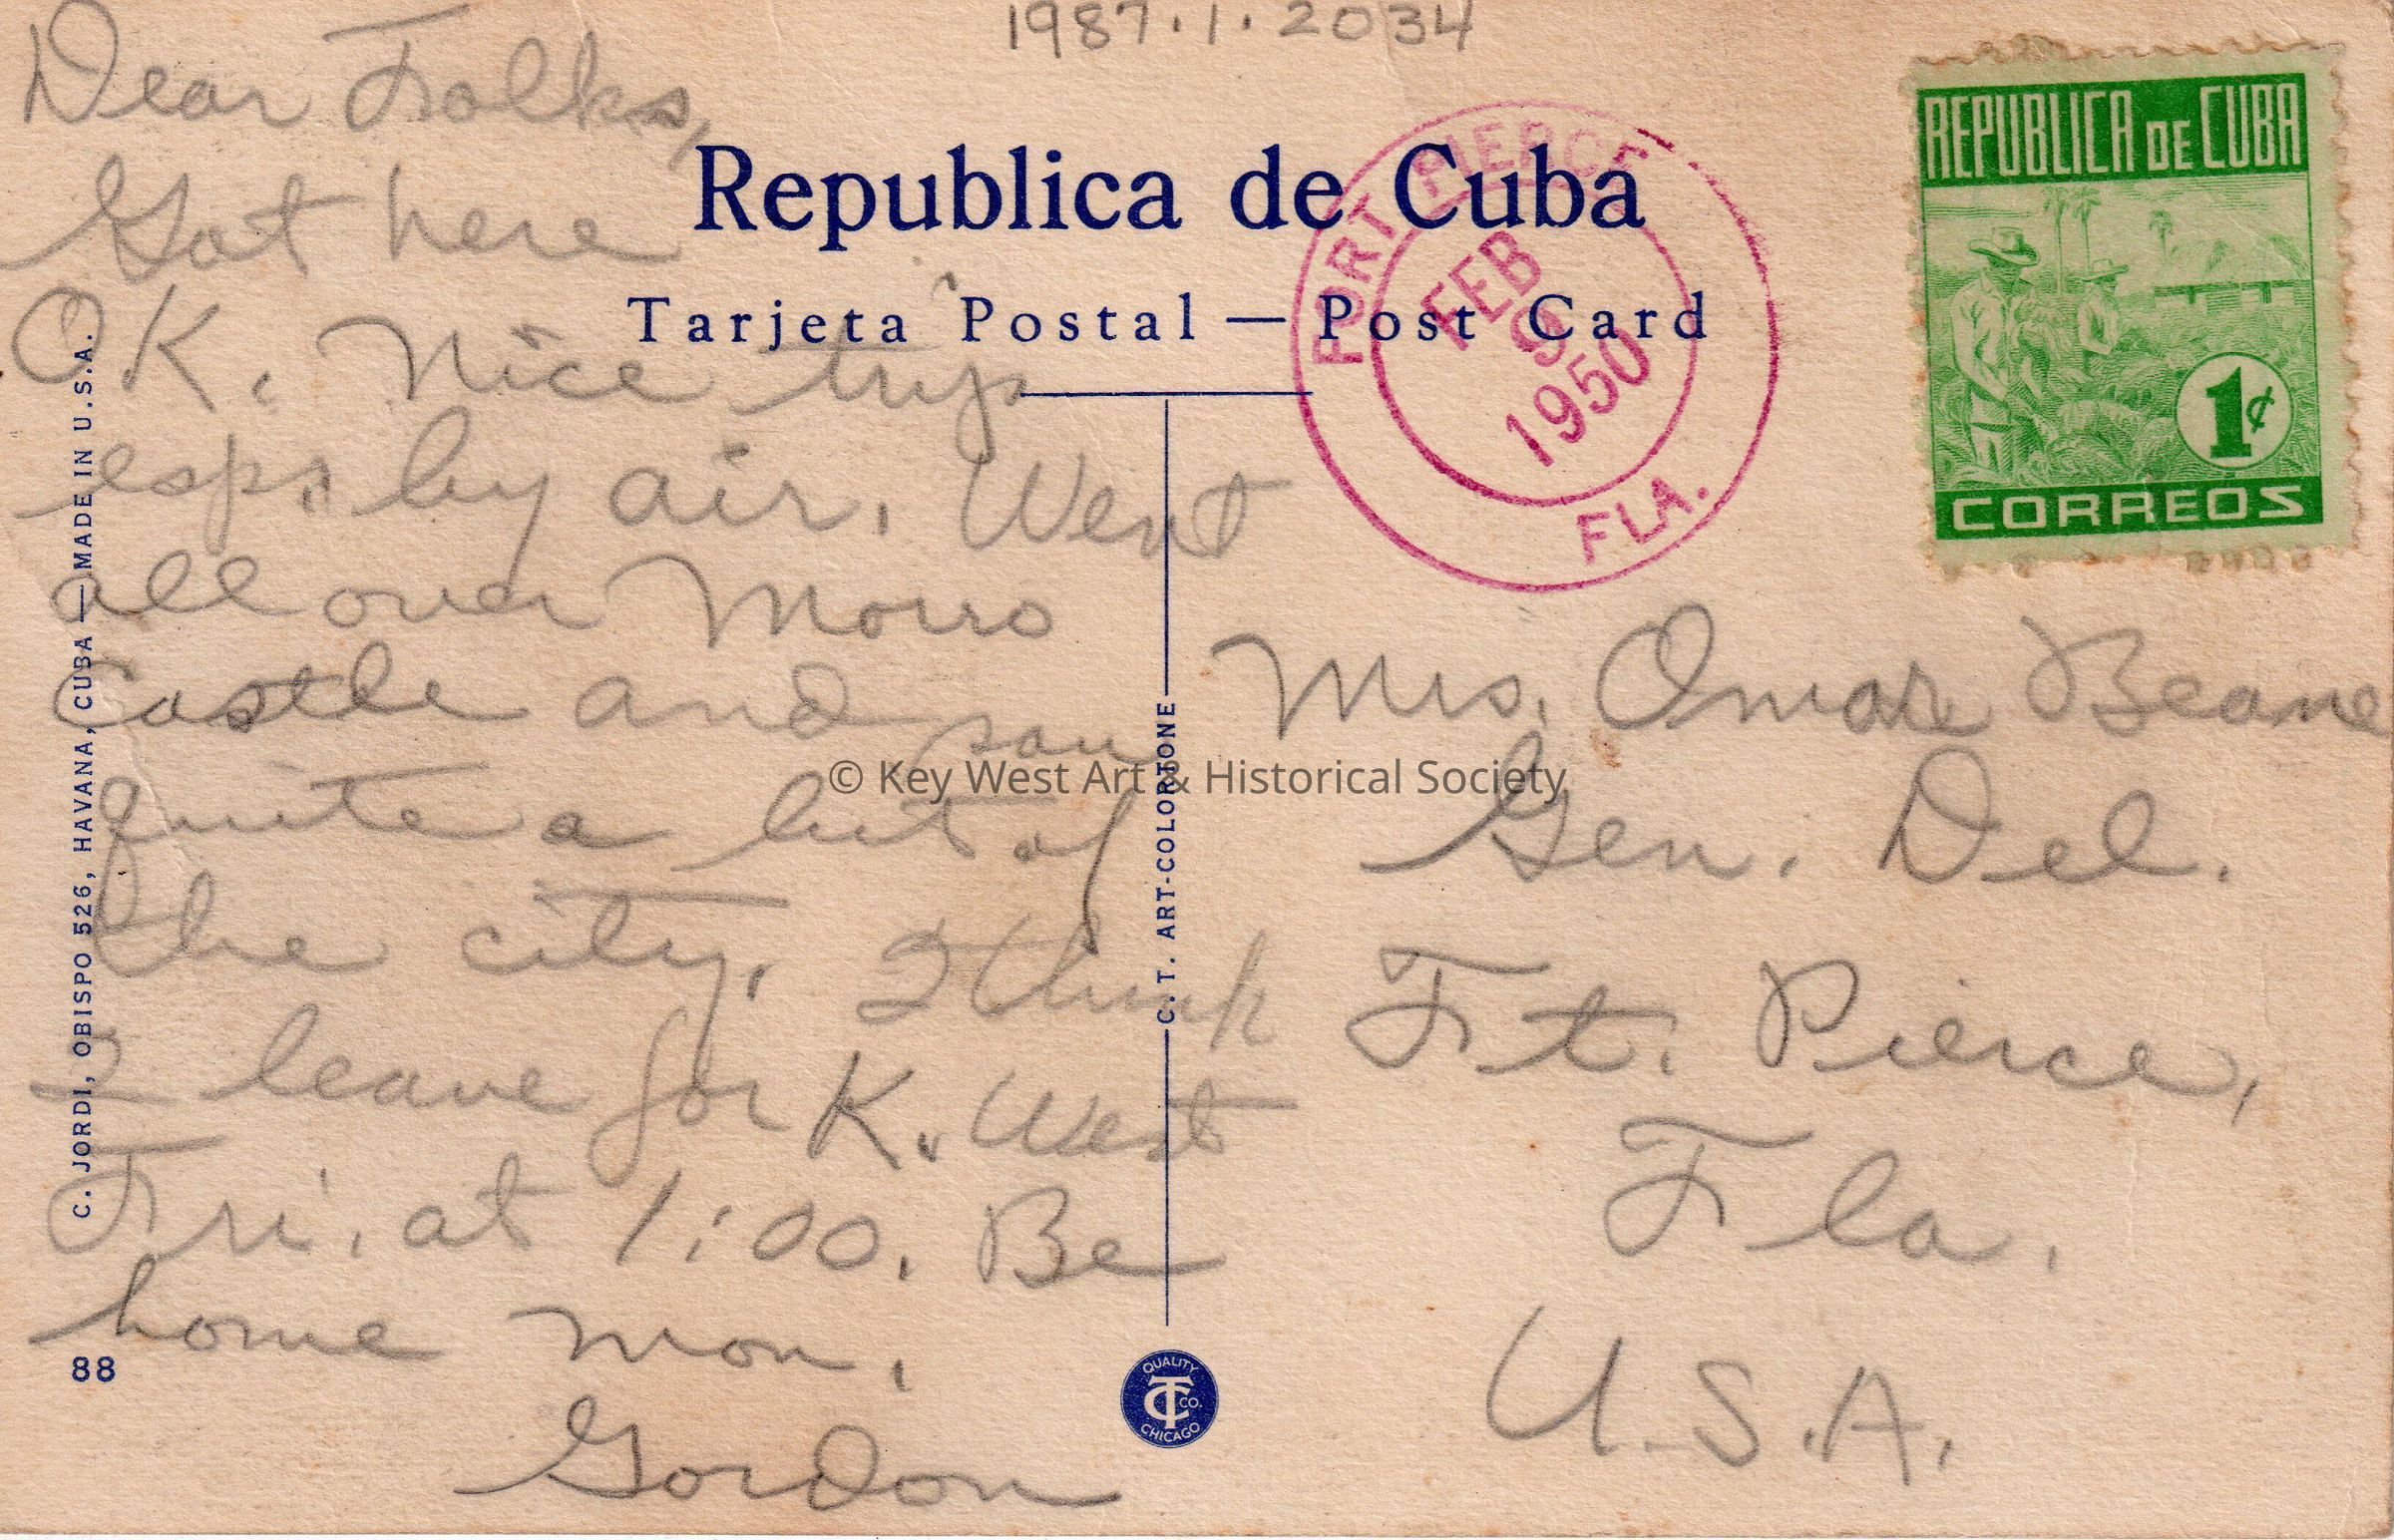 1987.1.2034
Dear Folks,
Got here
OK. Nice trip
esp. by air. Went
all over Morro
Castle and saw
quite a bit of
the city. I think
I leave for K. West
Fri. at 1:00. Be
home Mon.
Gordon
Republica de Cuba
Tarjeta Postal — Post Card
PORT PIERCE
FEB
9
1950
FLA.
REPUBLICA DE CUBA
1¢
CORREOS
Mrs. Omar Beane
Gen. Del.
Ft. Pierce,
Fla.
U.S.A.
C. JORDI, OBISPO 526, HAVANA, CUBA — MADE IN U.S.A.
C. T. ART-COLORTONE
88
QUALITY
CT CO.
CHICAGO
© Key West Art & Historical Society